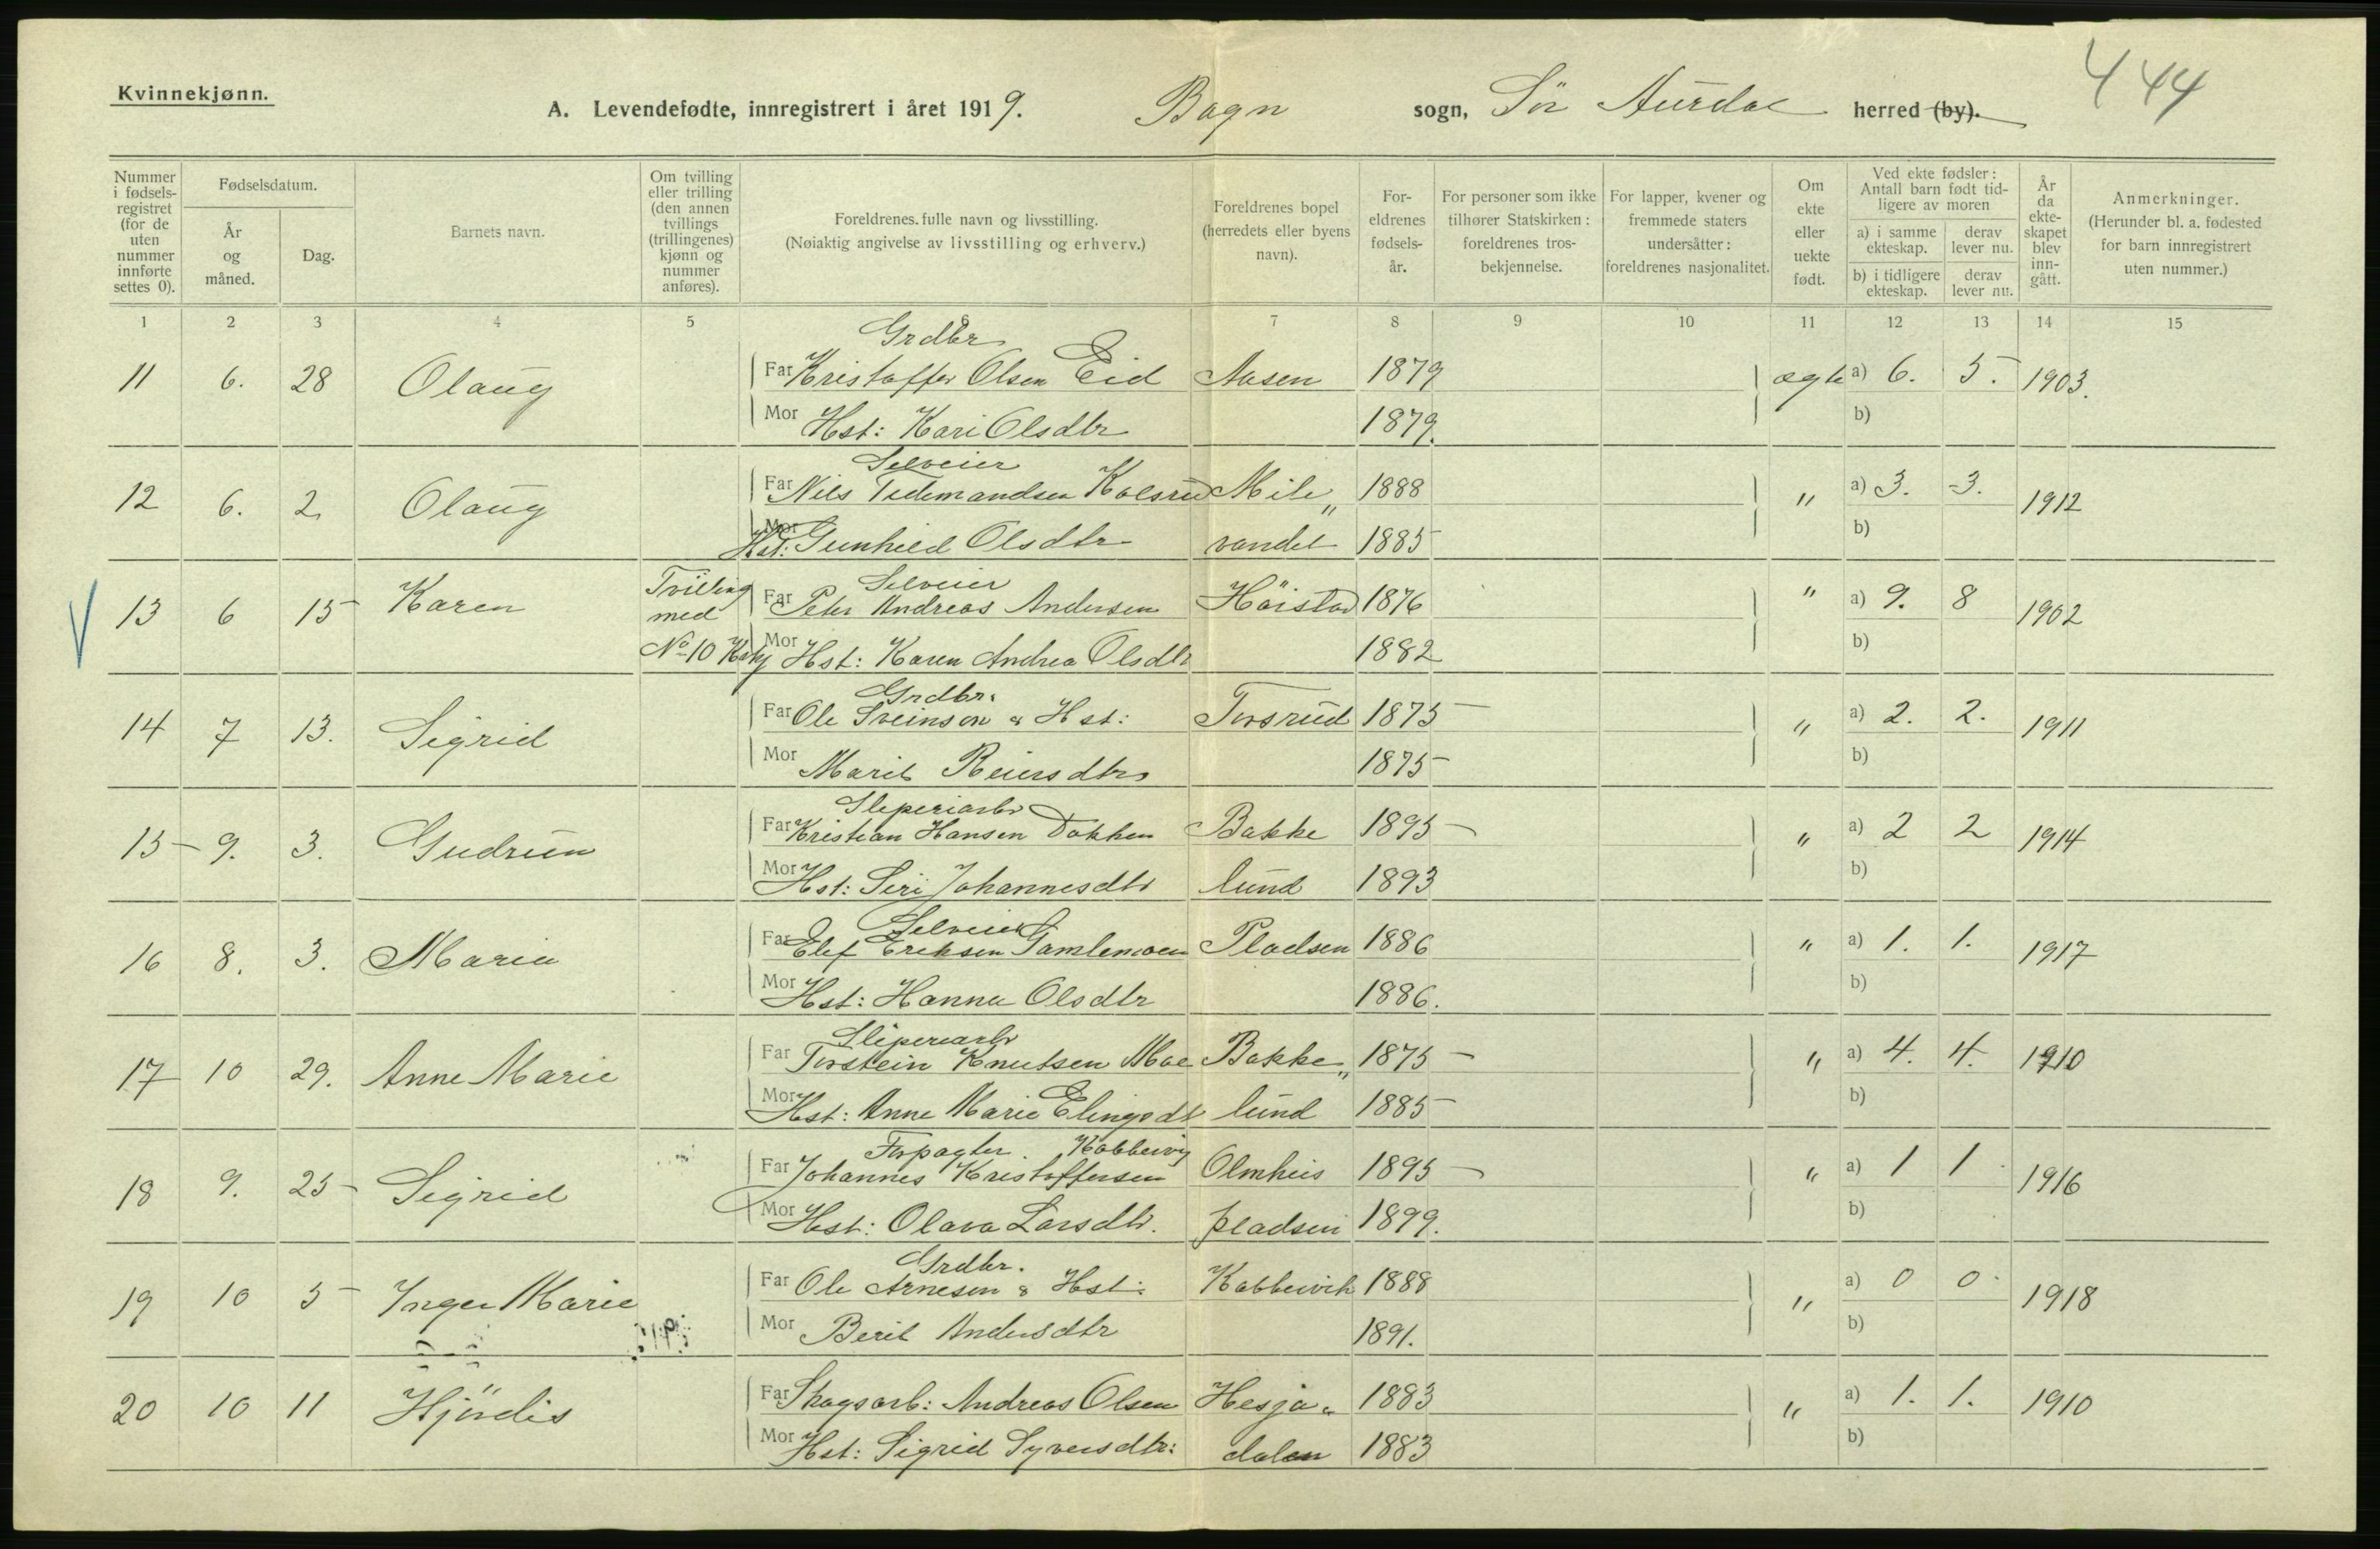 Kvinnekjønn.
A. Levendefødte, innregistrert i året 1919. Bagn sogn, Sör Aurdal herred (by). 444
Nummer i fødselsregistret (for de uten nummer innførte settes 0).
Fødselsdatum.
År og måned.
Dag.
Barnets navn.
Om tvilling eller trilling (den annen tvillings (trillingenes) kjønn og nummer anføres).
Foreldrenes fulle navn og livsstilling.
(Nøiaktig angivelse av livsstilling og erhverv.)
Foreldrenes bopel (herredets eller byens navn).
Foreldrenes fødselsår.
For personer som ikke tilhører Statskirken: foreldrenes trosbekjennelse.
For lapper, kvener og fremmede staters undersåtter: foreldrenes nasjonalitet.
Om ekte eller uekte født.
Ved ekte fødsler: Antall barn født tidligere av moren
a) i samme ekteskap. derav lever nu.
b) i tidligere ekteskap. derav lever nu.
År da ekteskapet blev inngått.
Anmerkninger.
(Herunder bl. a. fødested for barn innregistrert uten nummer.)
1 2 3 4 5 6 7 8 9 10 11 12 13 14 15
Grdbr
11 6. 28 Olaug Far Kristoffer Olsen Eid Aasen 1879 ægte a) 6. 5. 1903.
Mor Hst: Kari Olsdtr 1879. b)
Selveier
12 6. 2 Olaug Far Nils Tidemandsen Kolsrud Mile„ 1888 " a) 3. 3. 1912
Mor Hst: Gunhild Olsdtr vandet 1885 b)
Selveier
13 6 15 Karen Tvilling med Far Peter Andreas Andersen Höistad 1876 " a) 9. 8 1902
No 10 Mor Hst: Karen Andrea Olsdtr 1882 b)
Grdbr.
14 7 13. Sigrid Far Ole Sveinson & Hst: Torsrud 1875 " a) 2. 2. 1911
Mor Marit Reiersdtr 1875 b)
Sliperiarb
15 9. 3. Gudrun Far Kristian Hansen Dokken Bakke 1895 " a) 2 2 1914
Mor Hst: Siri Johannesdtr lund 1893 b)
Selveier
16 8. 3. Maria Far Elef Eriksen Gamlemoen Pladsen 1886 " a) 1. 1. 1917
Mor Hst: Hanna Olsdtr 1886. b)
Sliperiarb
17 10 29. Anne Marie Far Torstein Knutsen Moe Bakke„ 1875 " a) 4. 4. 1910
Mor Hst: Anne Marie Elingsdt lund 1885 b)
Forpagter. Kobbervig
18 9. 25 Sigrid Far Johannes Kristoffersen Olmhus 1895 " a) 1 1 1916
Mor Hst: Olava Larsdtr. pladsen 1899. b)
Grdbr.
19 10 5 Inger Marie Far Ole Arnesen & Hst: Kobbervik 1888 " a) 0 0 1918
Mor Berit Andersdtr 1891. b)
20 10 11 Hjördis Far Skogsarb: Andreas Olsen Hesja„ 1883 " a) 1. 1. 1910
Mor Hst: Sigrid Syversdtr: dalen 1883 b)